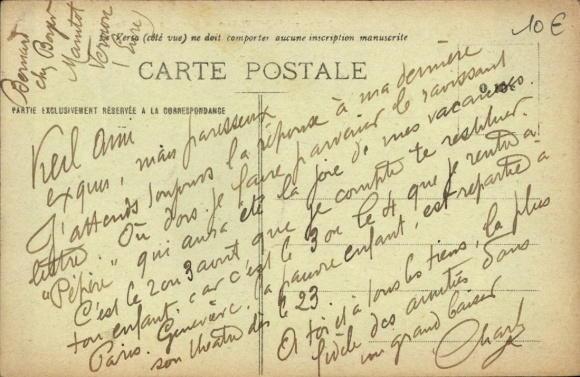 Bernard
chez Boyer
Manitot
Vernon
(Eure)
10 €
Verso (côté vue) ne doit comporter aucune inscription manuscrite
CARTE POSTALE
PARTIE EXCLUSIVEMENT RÉSERVÉE A LA CORRESPONDANCE
Vieil ami
exquis, mais paresseux
J'attends toujours la réponse à ma dernière
lettre. Où dois-je faire parvenir le ravissant
"Pépère" qui aura été la joie de mes vacances.
C'est le 2 ou 3 août que je compte te restituer
ton enfant, car c'est le 3 ou le 4 que je rentre à
Paris. Geneviève, la pauvre enfant, est repartie à
son théâtre dès le 23.
A toi et à tous les tiens, la plus
fidèle des amitiés dans
un grand baiser